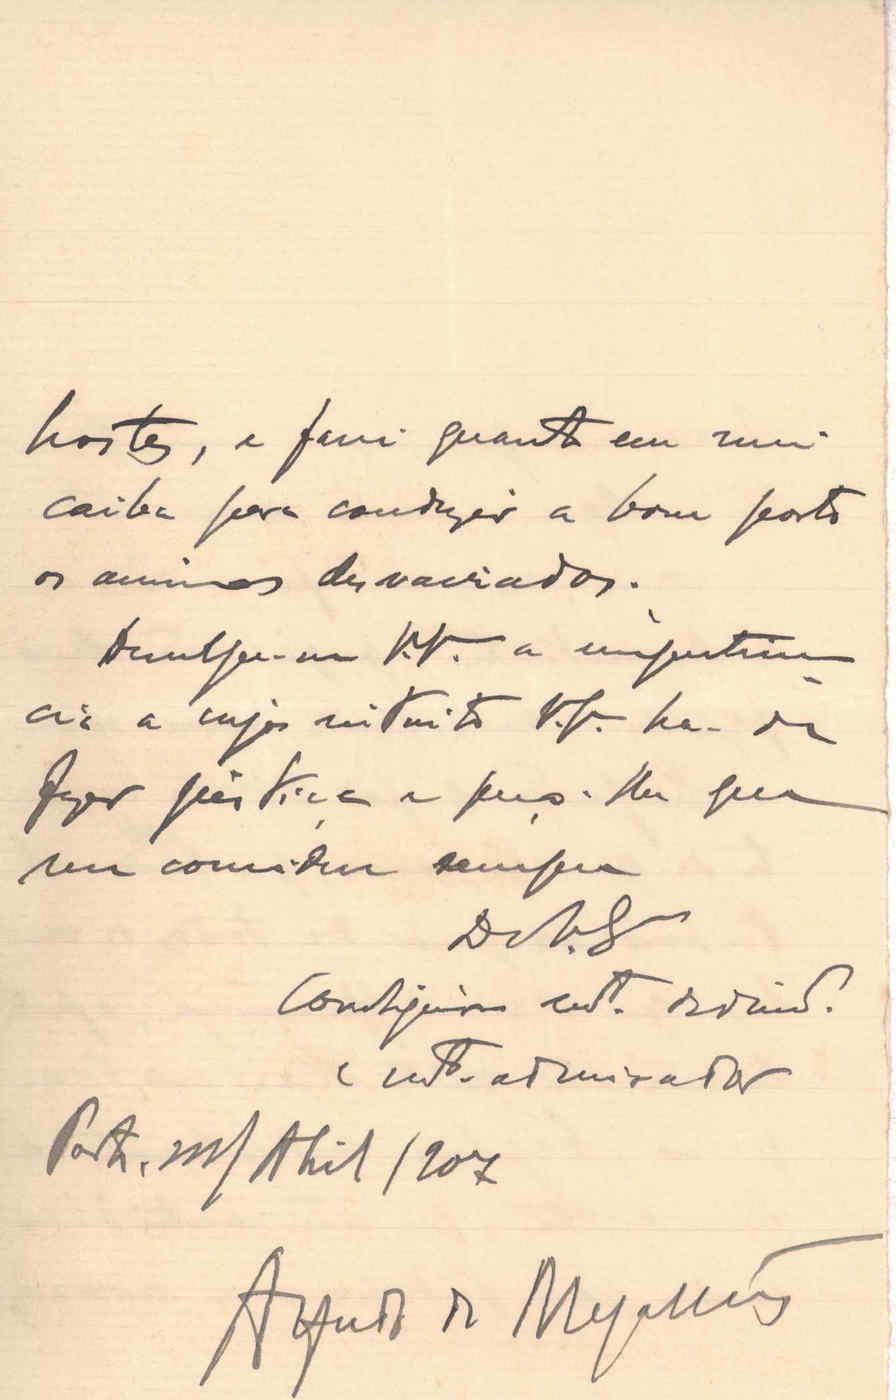 hostes, e farei quanto em mim
caiba para conduzir a bom porto
os animos desvairados.
Desculpe-me V. a impertinen
cia a cujo intuito V. ha-de
fazer justiça e peço-lhe que
me considere sempre
De V.
Correligionario mt.º dedicad.º
e mt.º admirador
Porto. Abril/907
Alfredo de Magalhães